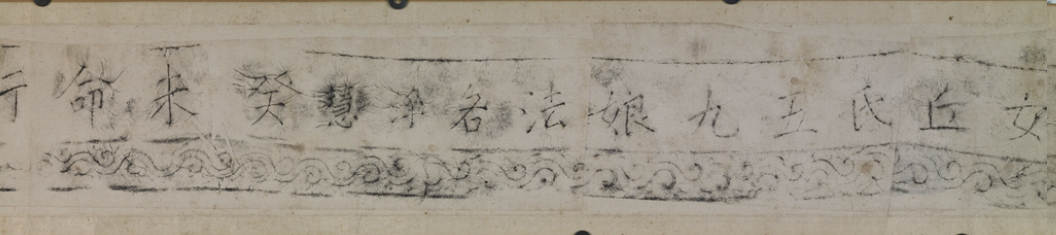 女丘氏五九娘法名净慧癸未命行